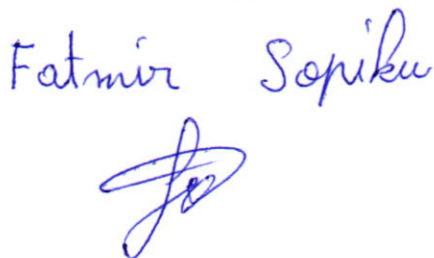 Fatmir Sopiku